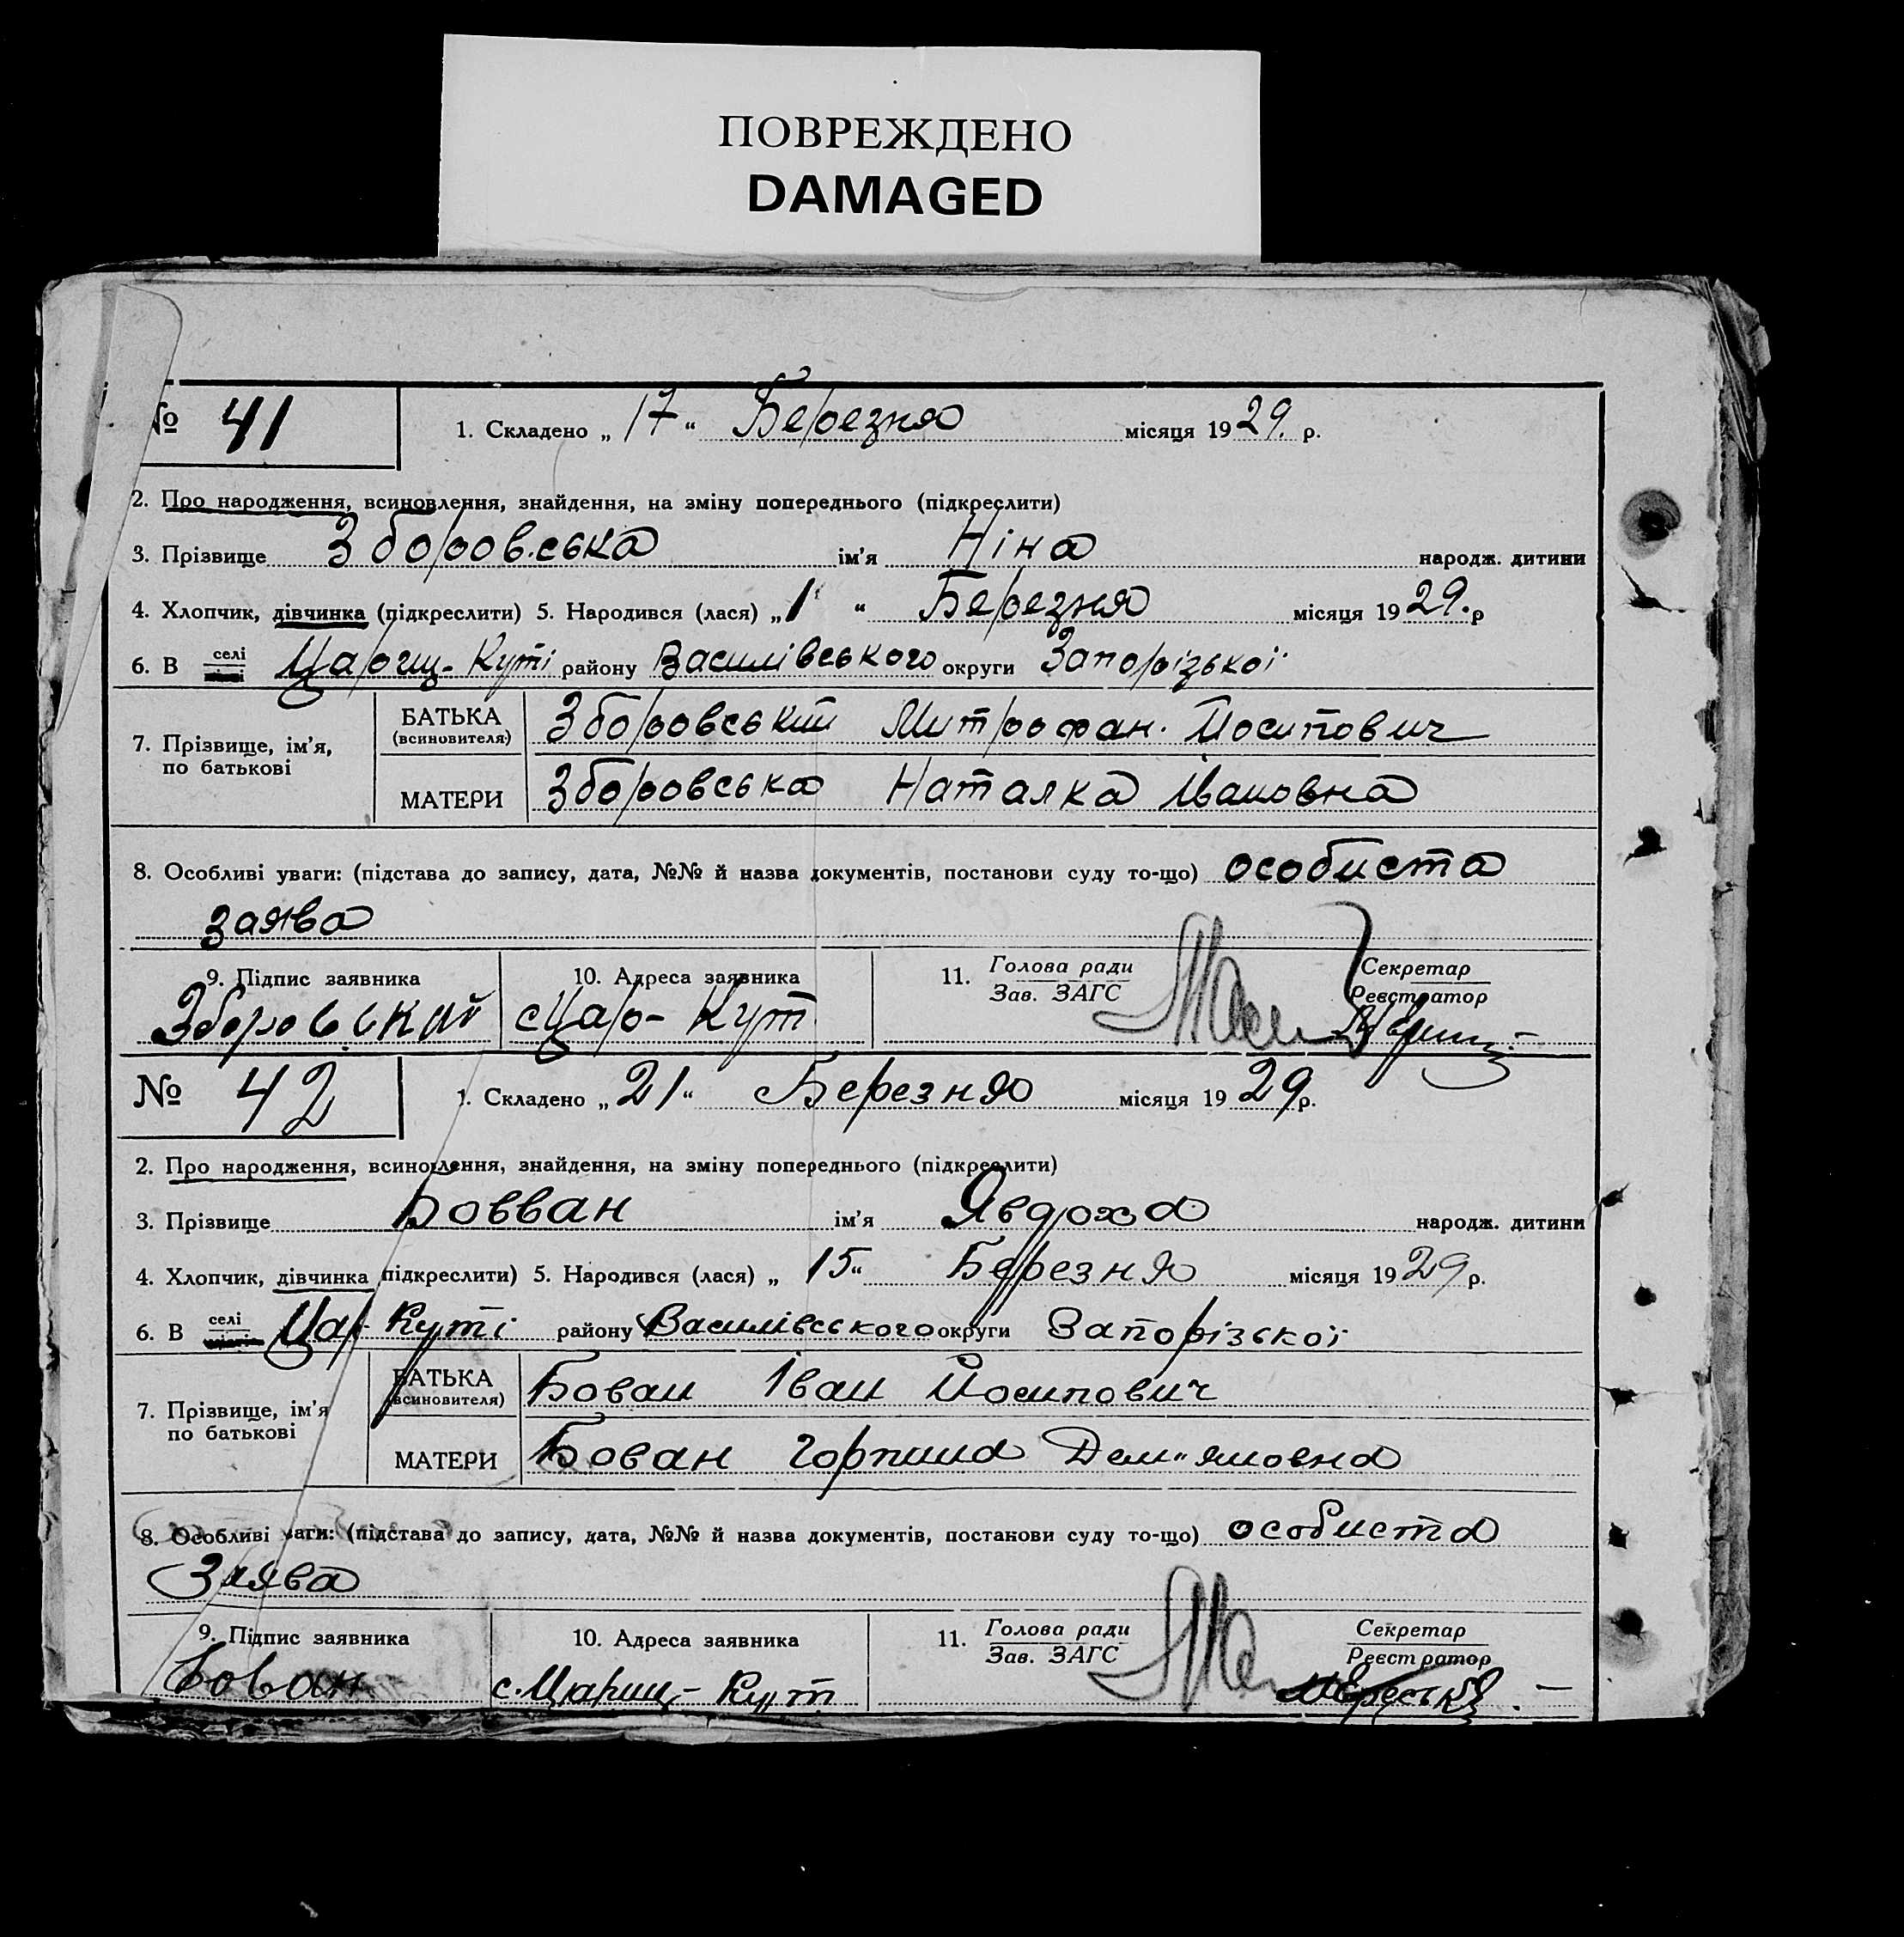 ПОВРЕЖДЕНО
DAMAGED
№ 41 1. Складено „ 17 “ Березня місяця 1929. р.
2. Про народження, всиновлення, знайдення, на зміну попереднього (підкреслити)
3. Прізвище Зборовська ім’я Ніна народж. дитини
4. Хлопчик, дівчинка (підкреслити) 5. Народився (лася) „ 1 “ Березня місяця 1929. р
6. В селі Цариц-Куті району Василівського округи Запорізької
7. Прізвище, ім’я, по батькові
БАТЬКА (всиновителя) Зборовський Митрофан. Йосипович
МАТЕРИ Зборовська Наталка Івановна
8. Особливі уваги: (підстава до запису, дата, №№ й назва документів, постанови суду то-що) особиста
заява
9. Підпис заявника 10. Адреса заявника 11. Голова ради Секретар
Зав. ЗАГС Реєстратор
Зборовський с Цар- Кут
№ 42 1. Складено „ 21 “ Березня місяця 1929 р.
2. Про народження, всиновлення, знайдення, на зміну попереднього (підкреслити)
3. Прізвище Бовван ім’я Явдоха народж. дитини
4. Хлопчик, дівчинка підкреслити) 5. Народився (лася) „ 15 “ Березня місяця 1929 р.
6. В селі Цар- Куті району Василівського округи Запорізької
7. Прізвище, ім’я по батькові
БАТЬКА (всиновителя) Бован Іван Йосипович
МАТЕРИ Бован Горпина Дем"яновна
8. Особливі ваги: (підстава до запису, дата, №№ й назва документів, постанови суду то-що) особиста
Заява
9. Підпис заявника 10. Адреса заявника 11. Голова ради Секретар
Зав. ЗАГС Реєстратор
Бован с. Цариц- Кут